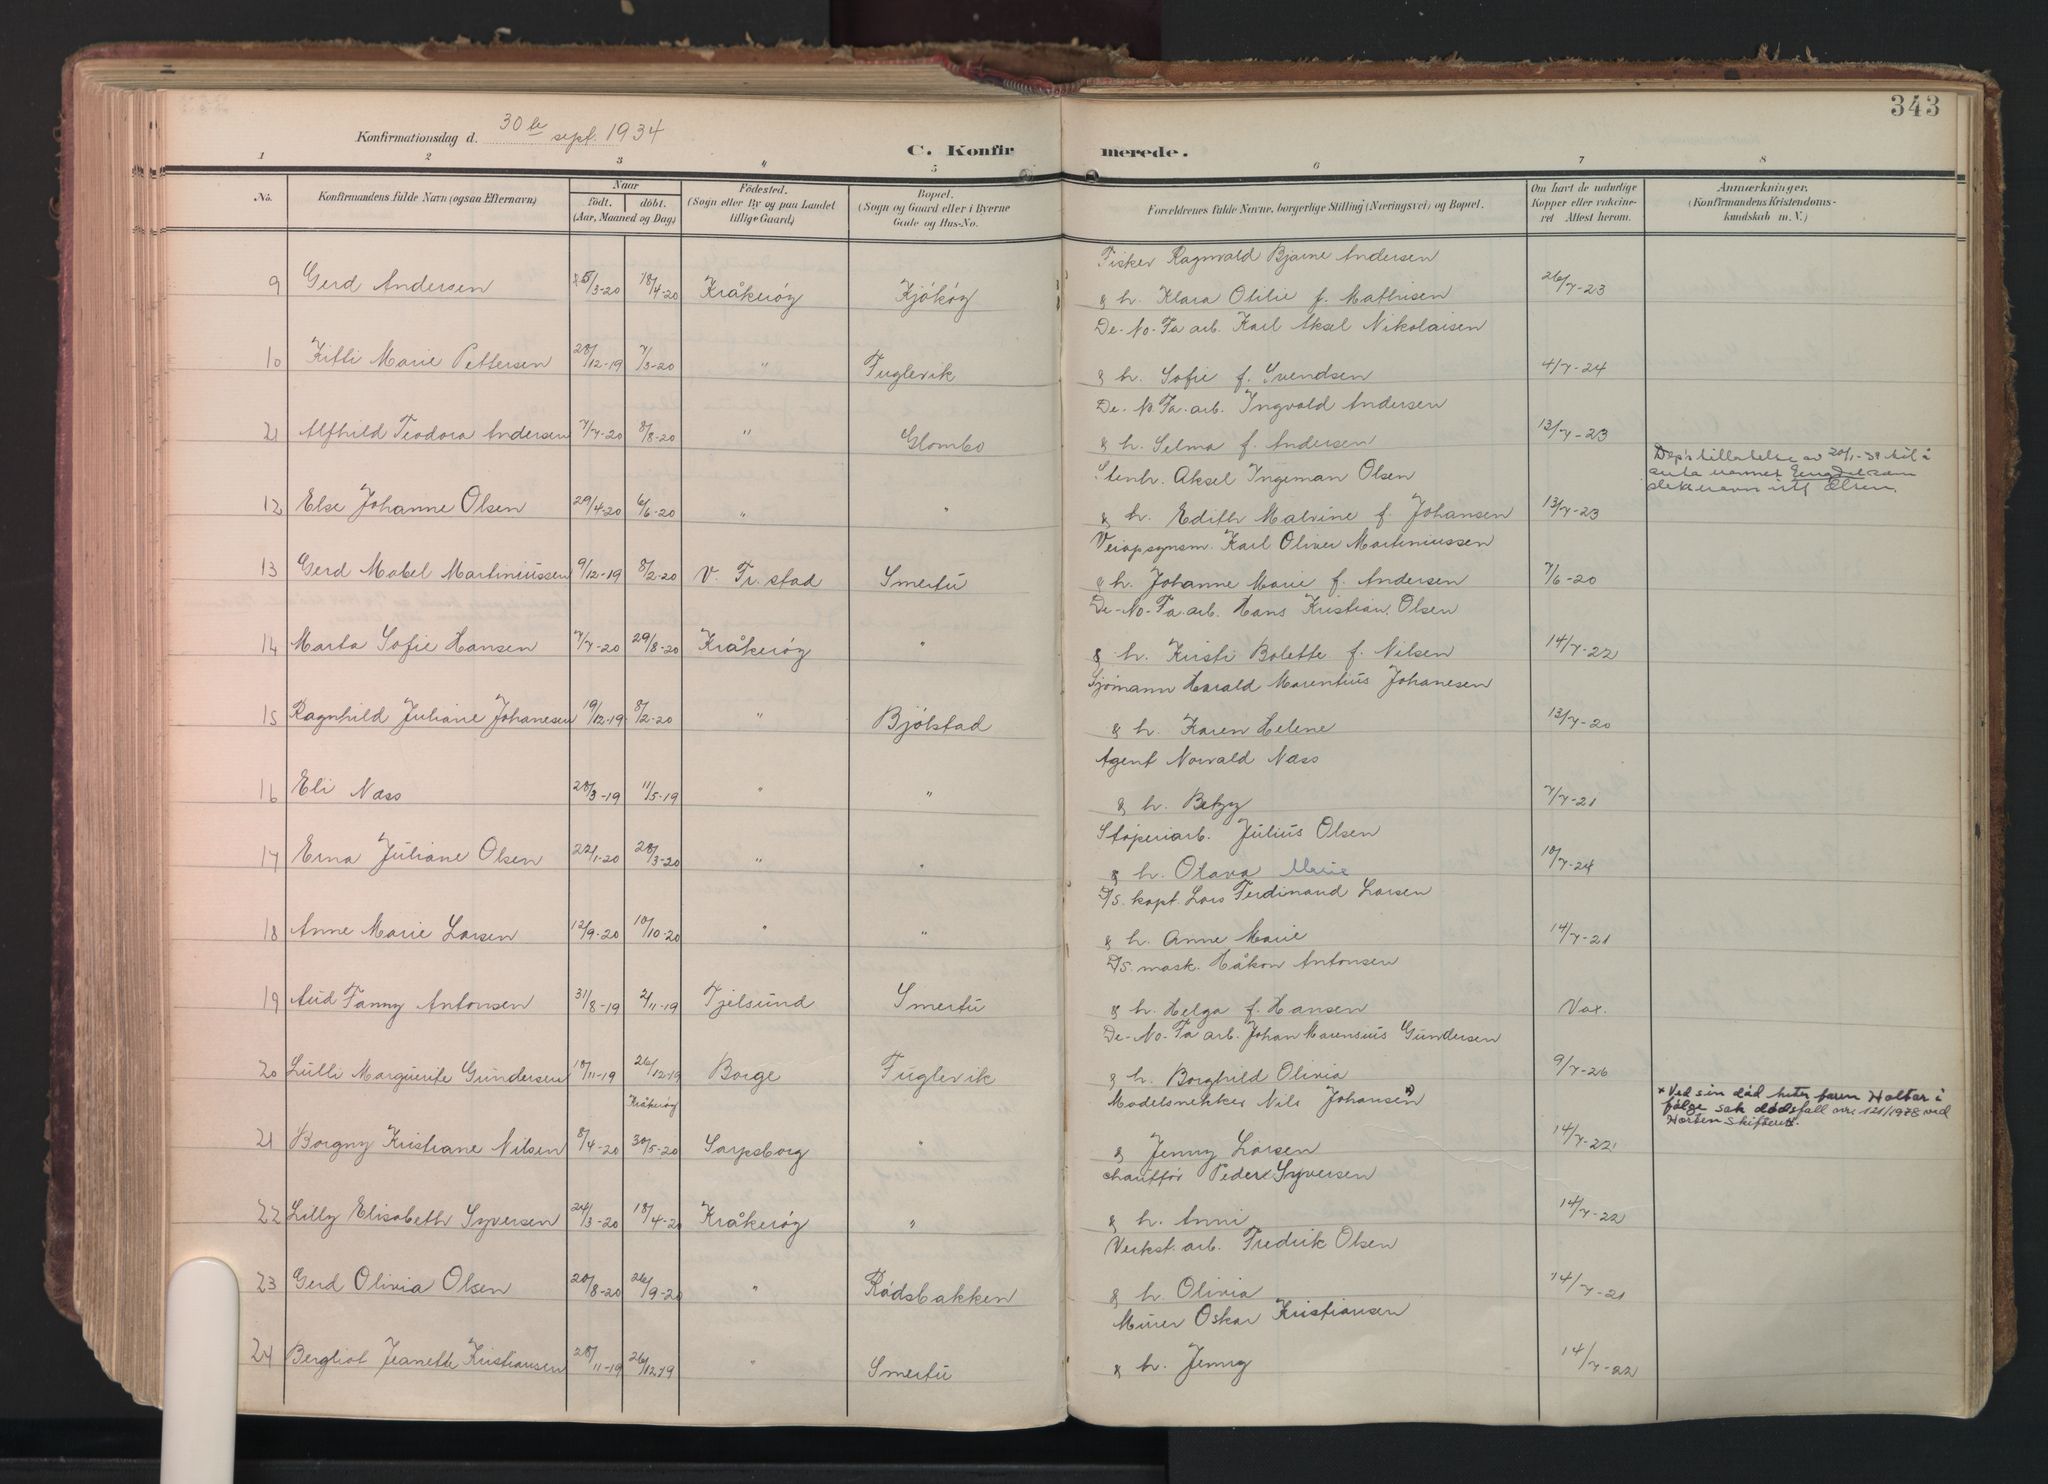 343
Konfirmationsdag d. 30te sept. 1934
C. Konfirmerede.
1 2 3 " 5 6 7 8
No. Konfirmandens fulde Navn (ogsaa Efternavn) Naar födt. döbt. (Aar, Maaned og Dag) Födested. (Sogn eller By og paa Landet tillige Gaard) Bopæl. (Sogn og Gaard eller i Byerne Gade og Hus-No. Forældrenes fulde Navne, borgerlige Stilling (Næringsvei) og Bopæl. Om havt de naturlige Kopper eller vakcineret Attest herom. Anmærkninger. (Konfirmandens Kristendomskundskab m. V.)
Fisker Ragnvald Bjarne Andersen
9 Gerd Andersen 5/3-20 18/4-20 Kråkerøy Kjøkøy & h. Klara Otilie f. Mathisen 26/7-23
De-No-Fa arb. Karl Aksel Nikolaisen
10 Kitti Marie Pettersen 28/12-19 7/3-20 " Fuglevik & h. Sofie f. Svendsen 4/7-24
De-No-Fa. arb. Ingvald Andersen
21 Alfhild Teodora Andersen 7/7-20 8/8-20 " Glombo & h. Selma f. Andersen 13/7-23
Stenh. Aksel Ingeman Olsen
Dep's tillatelse av 20/1-38 til å
anta navnet som
slektsnavn istf Olsen.
12 Else Johanne Olsen 29/4-20 6/6-20 " " & h. Edith Malvine f. Johansen 13/7-23
Veiopsynsm. Karl Oliver Martiniussen
13 Gerd Mabel Martiniussen 9/12-19 8/2-20 V. Fr.stad Smertu & h. Johanne Marie f. Andersen 7/6-20
De-No-Fa. arb. Hans Kristian Olsen
14 Marta Sofie Hansen 7/7-20 29/8-20 Kråkerøy " & h. Kristi Bolette f. Nilsen 14/7-22
Sjømann Harald Marentius Johanesen
15 Ragnhild Juliane Johanesen 19/12-19 8/2-20 " Bjølstad & h. Karen Helene 13/7-20
Agent Norvald Næss
16 Eli Næss 28/3-19 11/5-19 " " & h. Betzy 7/7-21
Støperiarb. Julius Olsen
17 Erna Juliane Olsen 22/1-20 28/3-20 " " & h. Olava Marie 18/7-24
D/S. kapt. Lars Ferdinand Larsen
18 Anne Marie Larsen 12/9-20 10/10-20 " " & h. Anne Marie 14/7-21
D/S. mask. Håkon Antonsen
19 Aud Fanny Antonsen 31/8-19 2/11-19 Fjelsund Smertu & h. Helga f. Hansen Vax.
De-No-Fa arb. Johan Marensius Gundersen
20 Lulli Marguerite Gundersen 18/11-19 26/12-19 Borge Fuglevik & h. Borghild Olivia 9/7-26
Kråkerøy
Modelsnekker Nils Johansen x)
x Ved sin død heter faren Holtar i
følge sak dødsfall nr. 121/1978 ved
Horten skifterett.
21 Borgny Kristiane Nilsen 8/4-20 30/5-20 Sarpsborg " & Jenny Larsen 14/7-22
chauffør Peder Syversen
22 Lilly Elisabeth Syversen 24/3-20 18/4-20 Kråkerøy " & h. Anni 14/7-22
Verkst. arb. Fredrik Olsen
23 Gerd Olivia Olsen 20/8-20 26/9-20 " Rødsbakken & h. Olivia 14/7-21
Murer Oskar Kristiansen
24 Bergliot Jeanette Kristiansen 28/11-19 26/12-19 " Smertu & h. Jenny 14/7-22